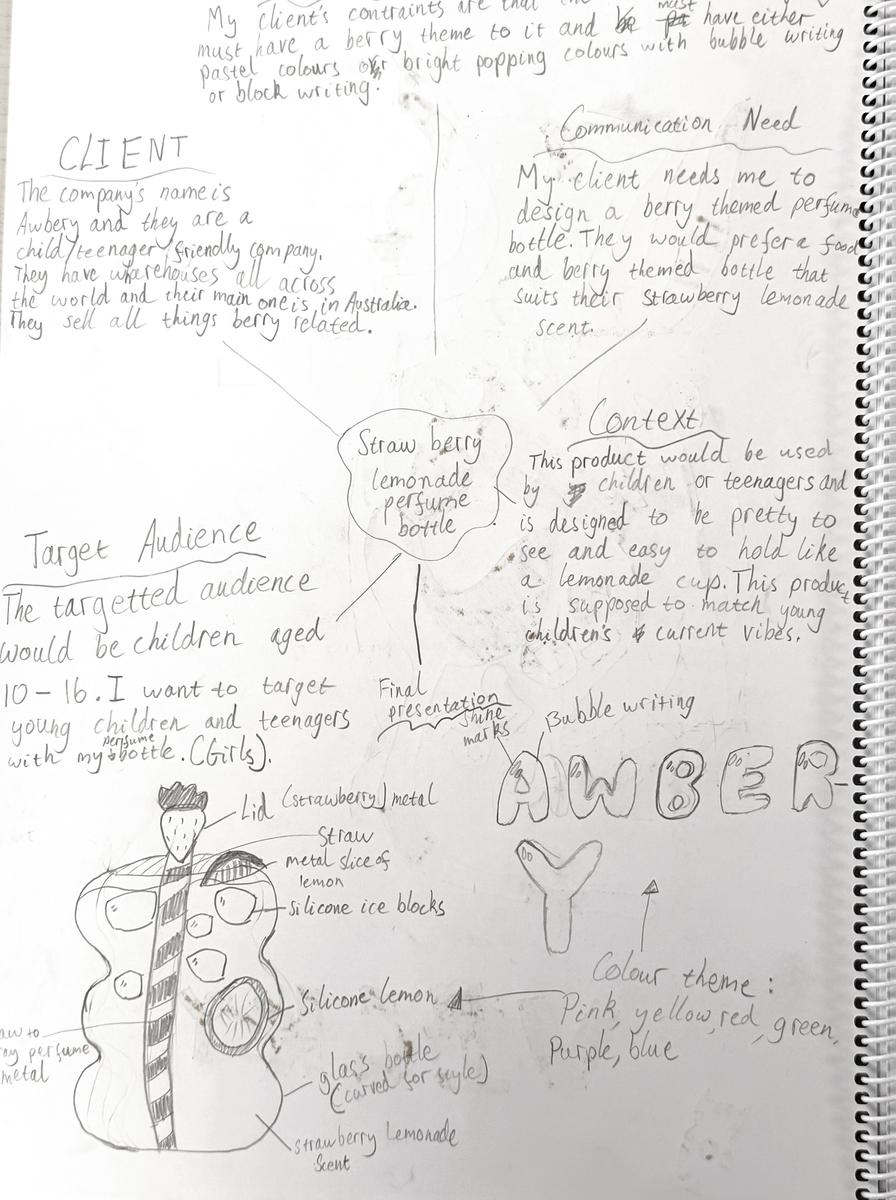 My client's contraints are that
must have a berry theme to it and must have either
pastel colours or bright popping colours with bubble writing
or block writing.
CLIENT
The company's name is
Awbery and they are a
child/teenager friendly company.
They have warehouses all across
the world and their main one is in Australia.
They sell all things berry related.
Communication Need
My client needs me to
design a berry themed perfume
bottle. They would prefer a food
and berry themed bottle that
suits their strawberry lemonade
scent.
Straw berry
lemonade
perfume
bottle
Context
This product would be used
by children or teenagers and
is designed to be pretty to
see and easy to hold like
a lemonade cup. This product
is supposed to match young
children's current vibes.
Target Audience
The targetted audience
would be children aged
10-16. I want to target
young children and teenagers
with my perfume bottle. (Girls).
Final
presentation
shine
marks
Bubble writing
AWBER-
Y
Lid (strawberry) metal
Straw
metal slice of
lemon
silicone ice blocks
Silicone lemon
aw to
ay perfume
metal
glass bottle
(curved for style)
strawberry Lemonade
Scent
Colour theme:
Pink, yellow, red, green,
Purple, blue